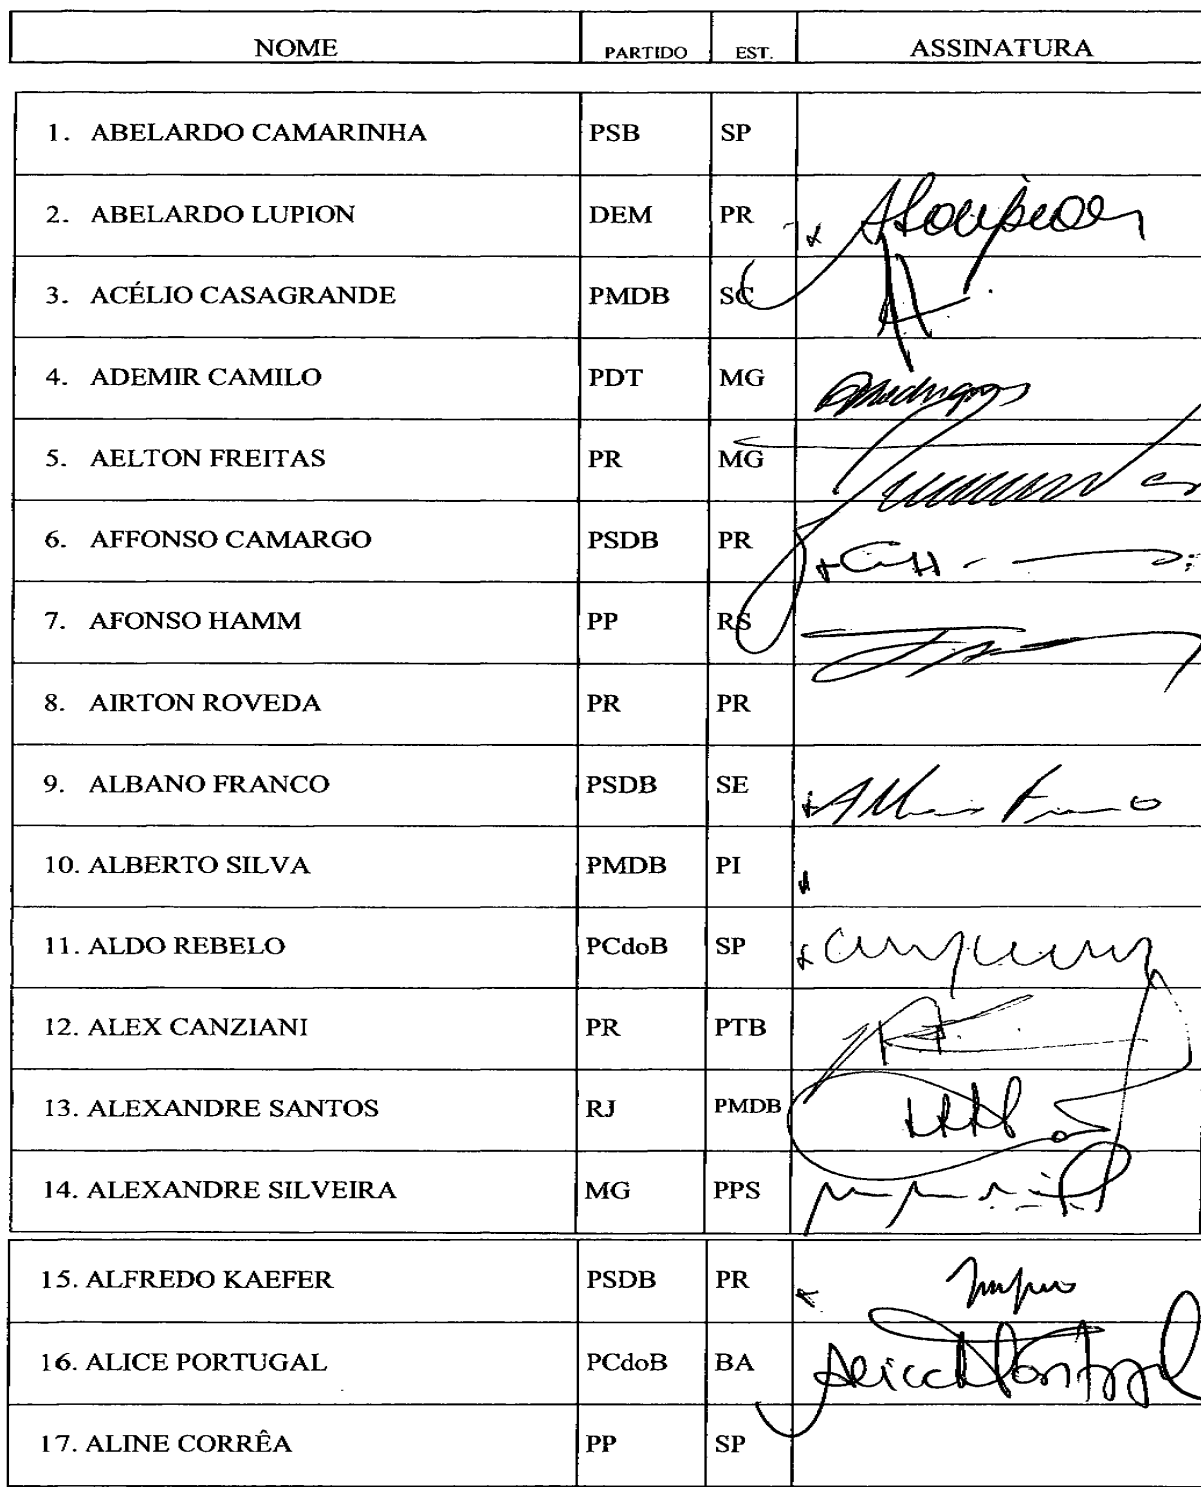 NOME PARTIDO EST. ASSINATURA
1. ABELARDO CAMARINHA PSB SP
2. ABELARDO LUPION DEM PR ALupion
3. ACÉLIO CASAGRANDE PMDB SC
4. ADEMIR CAMILO PDT MG
5. AELTON FREITAS PR MG
6. AFFONSO CAMARGO PSDB PR
7. AFONSO HAMM PP RS
8. AIRTON ROVEDA PR PR
9. ALBANO FRANCO PSDB SE Albano Franco
10. ALBERTO SILVA PMDB PI
11. ALDO REBELO PCdoB SP
12. ALEX CANZIANI PR PTB
13. ALEXANDRE SANTOS RJ PMDB
14. ALEXANDRE SILVEIRA MG PPS
15. ALFREDO KAEFER PSDB PR
16. ALICE PORTUGAL PCdoB BA Alice Portugal
17. ALINE CORRÊA PP SP